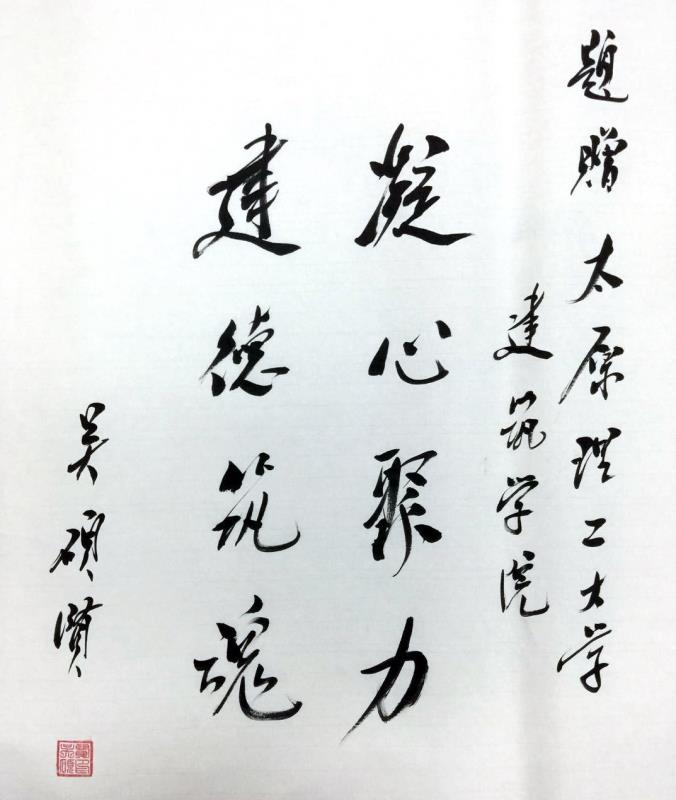 题赠太原理工大学
建筑学院
凝心聚力
建德筑魂
吴硕贤